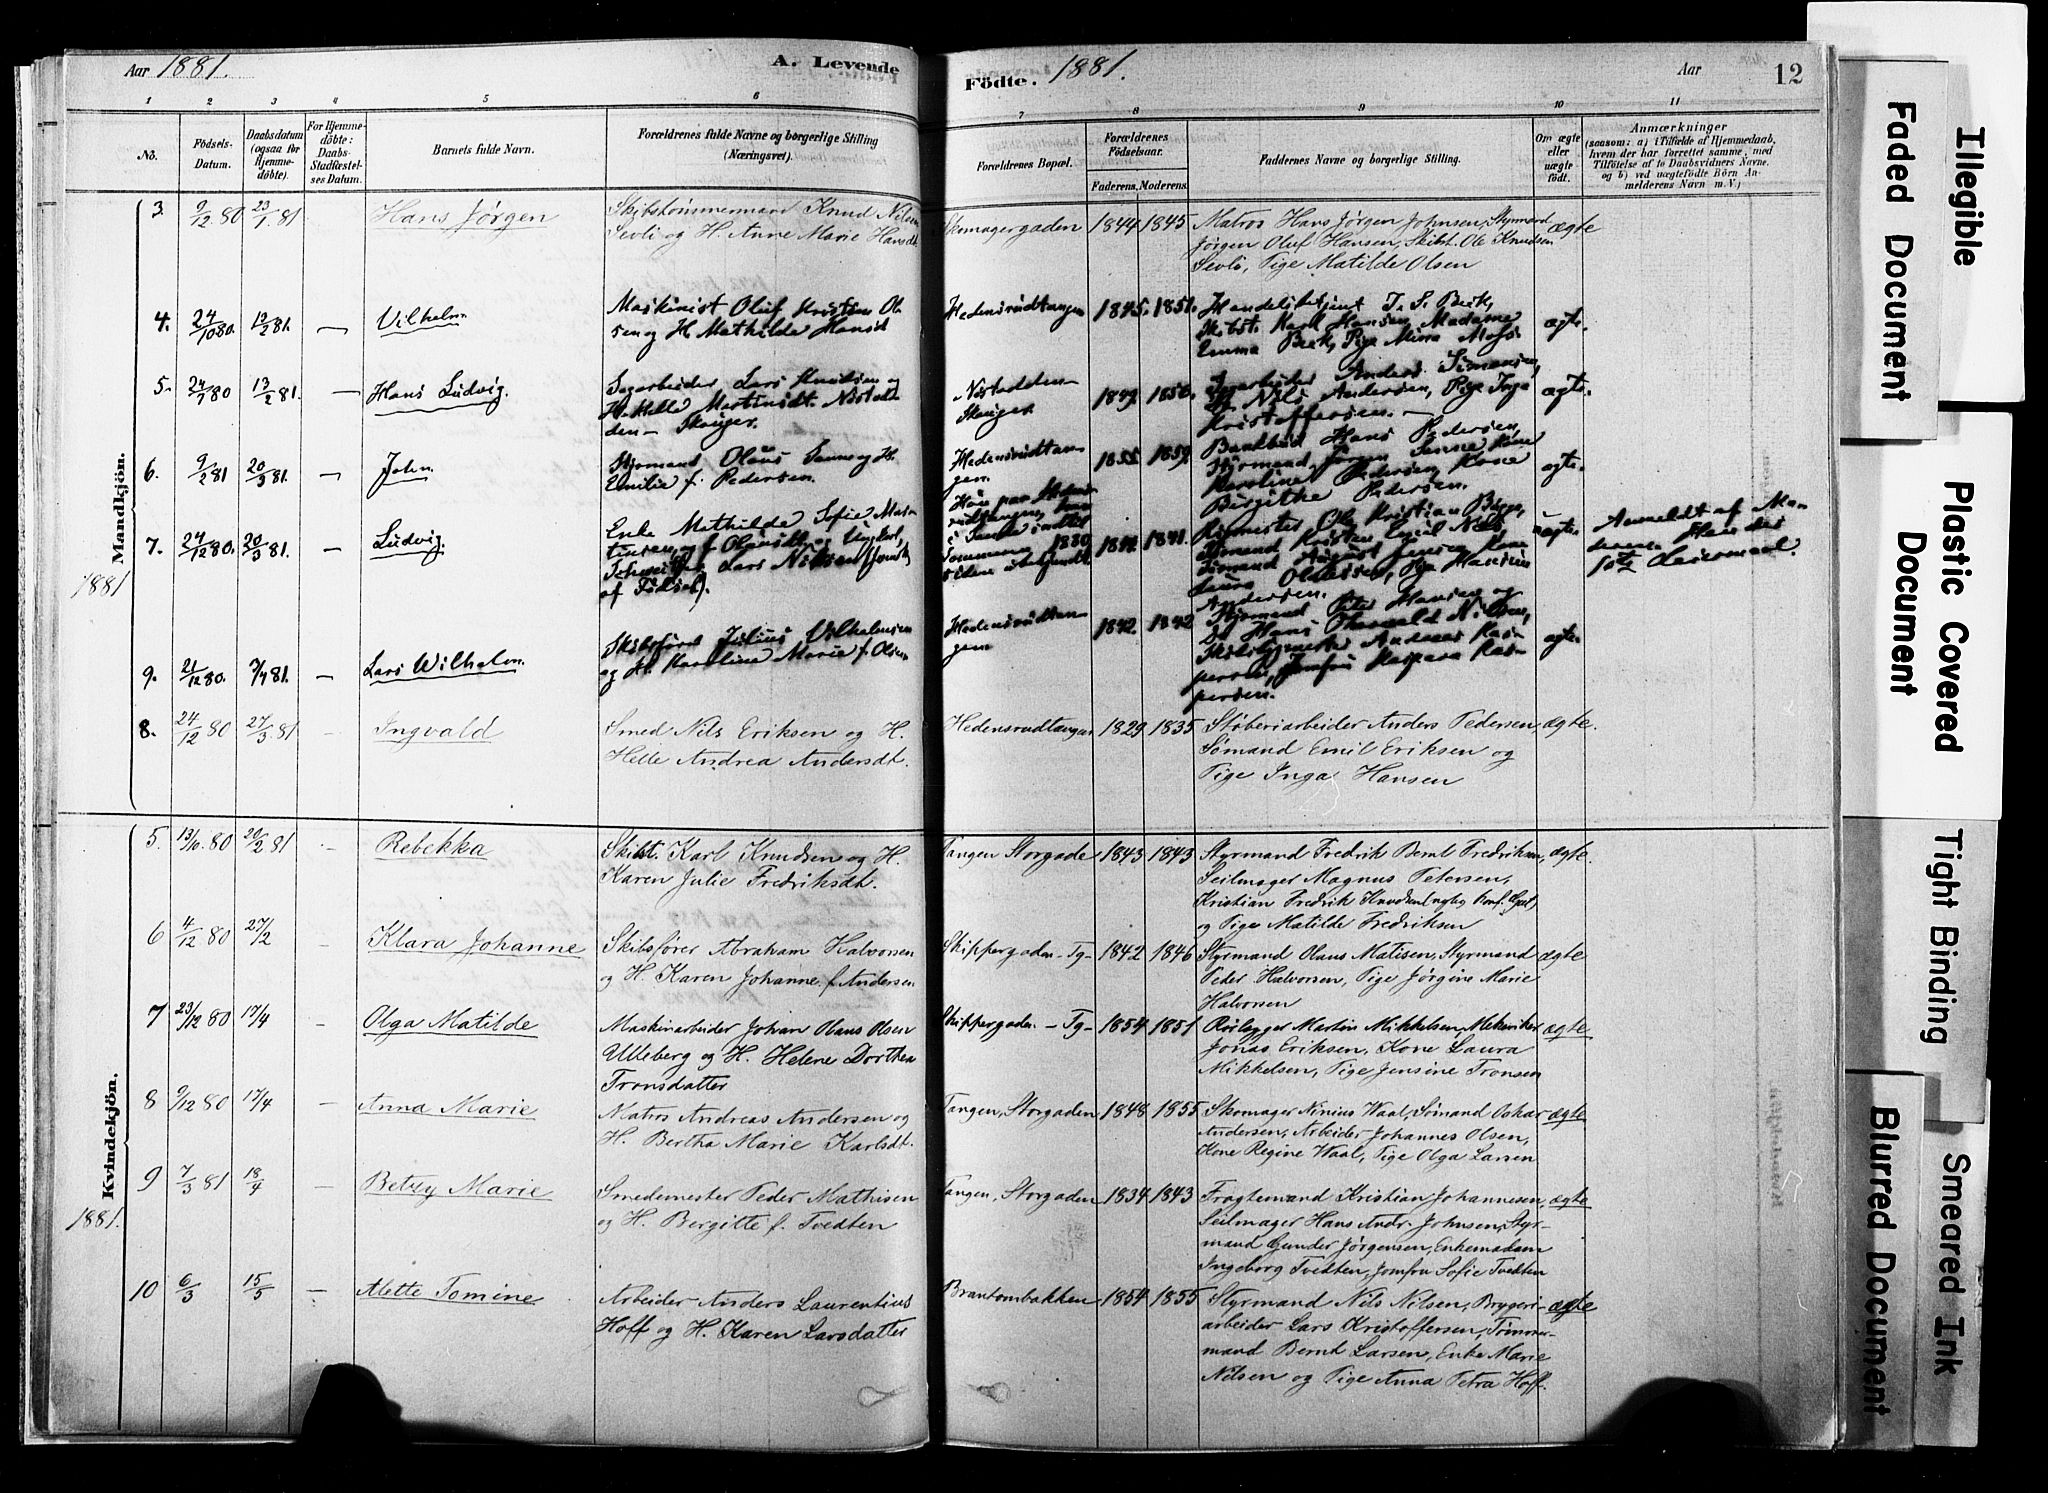 Aar 1881. A. Levende
Födte. 1881. Aar 12
1 2 3 4 5 6 7 8 9 10 11
No.
Födsels-
Datum.
Daabsdatum
(ogsaa for
Hjemme-
döbte).
For Hjemme-
döbte:
Daabs-
Stadfæstel-
ses Datum.
Barnets fulde Navn.
Forældrenes fulde Navne og borgerlige Stilling
(Næringsvei).
Forældrenes Bopæl.
Forældrenes
Födselsaar.
Faderens. Moderens.
Faddernes Navne og borgerlige Stilling.
Om ægte
eller
uægte
födt.
Anmærkninger
(saasom: a) i Tilfælde af Hjemmedaab,
hvem der har forrettet samme, med
Tilföielse af to Daabsvidners Navne,
og b) ved uægtefödte Börn An-
melderens Navn m. V.)
Mandkjön.
1881
3. 9/12 80 23/1 81 Hans Jørgen
Skibstømmermand Knud Nilsen
Sevli og H. Anne Marie Hansdt
Skomagergaden 1844 1845
Matros Hans Jørgen Johnsen, Styrmand
Jørgen Oluf Hansen, Skibst. Ole Knudsen
Sevli, Pige Matilde Olsen
ægte
4. 24/10 80. 13/2 81. — Vilhelm
Maskinist Oluf Kristian Ol-
sen og H. Mathilde Hansd
Hedensrudtangen 1845. 1851.
Handelsbetjent T. S. Beck,
Skibst. Karl Hansen, Madame
Emma Beck, Pige Minna
ægte.
5. 24/7 80 13/2 81. — Hans Ludvig.
Sagarbeider Lars Knudsen og
H. Helle Martinsdt.
den — Skouger.
Skouger. 1849. 1856.
Sagarbeider Anders Simensen,
Nils Andersen, Pige Inga
Kristoffersen. —
ægte.
6. 9/2 81 20/3 81. — John.
Styrmand Olaus Sanne og H.
Emilie f. Pedersen.
Hedensrudtan-
gen. 1855. 1859.
Hans Pedersen,
Styrmand Jørgen Sanne, Kone
Karoline Pedersen, Kone
Birgithe Pedersen.
ægte.
7. 24/12 80. 20/3 81. — Ludvig.
Enke Mathilde Sofie Mar-
tinsen f. Olausdt. og Ungkarl,
Lars Nilsen
af Födsel).
Sommeren 1880
siden ubekjendt 1841.
Kristian
Styrmand Kristen Emil Nils
Styrmand August Jensen, Kone
Laura Oldersen, Pige Hansine
Andersen.
uægte.
Anmeldt af Mo-
deren. Hendes
Leiermaal.
9. 21/12 80. 7/4 81. — Lars Wilhelm.
Skibsfører Julius Vilhelmsen
og H. Karoline Marie f. Olsen
Hedensrudtan-
gen 1842. 1842
Styrmand Peter Hansen og
Do Hans Thorvald Nilsen,
Skibsbygmester Andreas Kas-
persen, Jomfru Kaspara Kas-
persen.
ægte.
8. 24/12 80 27/3 81 Ingvald
Smed Nils Eriksen og H.
Helle Andrea Andersdt.
Hedensrudtangen 1829 1835
Støberiarbeider Anders Pedersen,
Sømand Emil Eriksen og
Pige Inga Hansen
ægte.
Kvindekjön.
1881.
5. 13/10. 80 20/2 81 Rebekka
Skibst. Karl Knudsen og H.
Karen Julie Fredriksdt.
Tangen Storgade 1843 1843
Styrmand Fredrik Bernt Fredriksen,
Seilmager Magnus Petersen,
Kristian Fredrik Knudsen (nylig konf. Gut)
og Pige Matilde Fredriksen
ægte.
6 4/12 80 27/2 Klara Johanne
Skibsfører Abraham Halvorsen
og H. Karen Johanne f. Andersen
Skippergaden - Tg- 1842 1846
Styrmand Olaus Matisen, Styrmand
Peder Halvorsen, Pige Jørgine Marie
Halvorsen
ægte
7 23/12 80 17/4 — Olga Matilde
Maskinarbeider Johan Olaus Olsen
Ulleberg og H. Helene Dorthea
Tronsdatter
Skippergaden. - Tg- 1854 1851
Rorlægger Martin Mikkelsen, Mekaniker
Jonas Eriksen, Kone Laura
Mikkelsen, Pige Jensine Tronsen
ægte
8 9/12 80 17/4 — Anna Marie
Matros Andreas Andersen og
H. Bertha Marie Karlsdt.
Tangen, Storgaden 1848 1855
Skomager Ninius Waal, Sömand Oskar
Andersen, Arbeider Johannes Olsen,
Kone Regine Waal, Pige Olga Larsen
ægte
9 7/3 81 18/4 — Betzy Marie
Smedemester Peder Mathisen
og H. Bergitte f. Tvedten
Tangen, Storgaden 1834 1843
Fragtemand Kristian Johannesen,
Seilmager Hans Andr. Johnsen, Styr-
mand Gunder Jørgensen, Enkemadam
Ingeborg Tvedten, Jomfru Sofie Tvedten
ægte
10 6/3 15/5 — Alette Tomine
Arbeider Anders Laurentius
Hoff og H. Karen Larsdatter
Brantombakken 1854 1855
Styrmand Nils Nilsen, Bryggeri-
arbeider Lars Kristoffersen, Tømmer-
mand Bernt Larsen, Enke Marie
Nilsen og Pige Anna Petra Hoff.
ægte
Illegible
Faded Document
Plastic Covered
Document
Tight Binding
Blurred Document
Smeared Ink